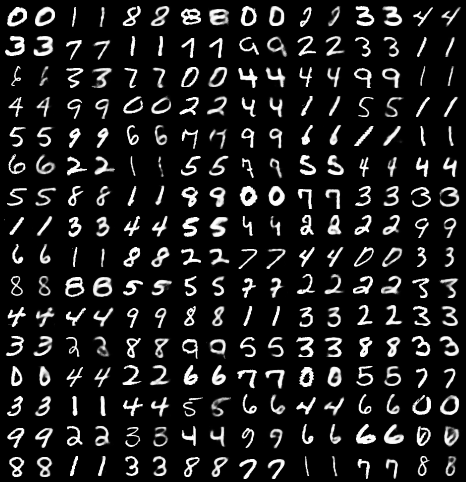 0 0 1 1 8 8 8 8 0 0 2 2 3 3 4 4
3 3 7 7 1 1 1 1 9 9 2 2 3 3 1 1
6 6 3 3 7 7 0 0 4 4 4 4 9 9 1 1
4 4 9 9 0 0 2 2 4 4 1 1 5 5 1 1
5 5 9 9 6 6 7 7 9 9 6 6 1 1 1 1
6 6 2 2 1 1 5 5 7 7 5 5 4 4 4 4
5 5 8 8 1 1 8 8 0 0 7 7 3 3 3 3
1 1 3 3 4 4 5 5 4 4 2 2 2 2 9 9
6 6 1 1 8 8 2 2 7 7 4 4 0 0 3 3
8 8 8 8 5 5 5 5 7 7 2 2 2 2 3 3
4 4 4 4 9 9 8 8 1 1 3 3 2 2 3 3
3 3 2 2 8 8 9 9 5 5 3 3 8 8 3 3
0 0 4 4 2 2 6 6 7 7 0 0 5 5 7 7
3 3 1 1 4 4 5 5 6 6 4 4 6 6 0 0
9 9 2 2 3 3 4 4 9 9 6 6 6 6 0 0
8 8 1 1 3 3 8 8 7 7 1 1 7 7 8 8